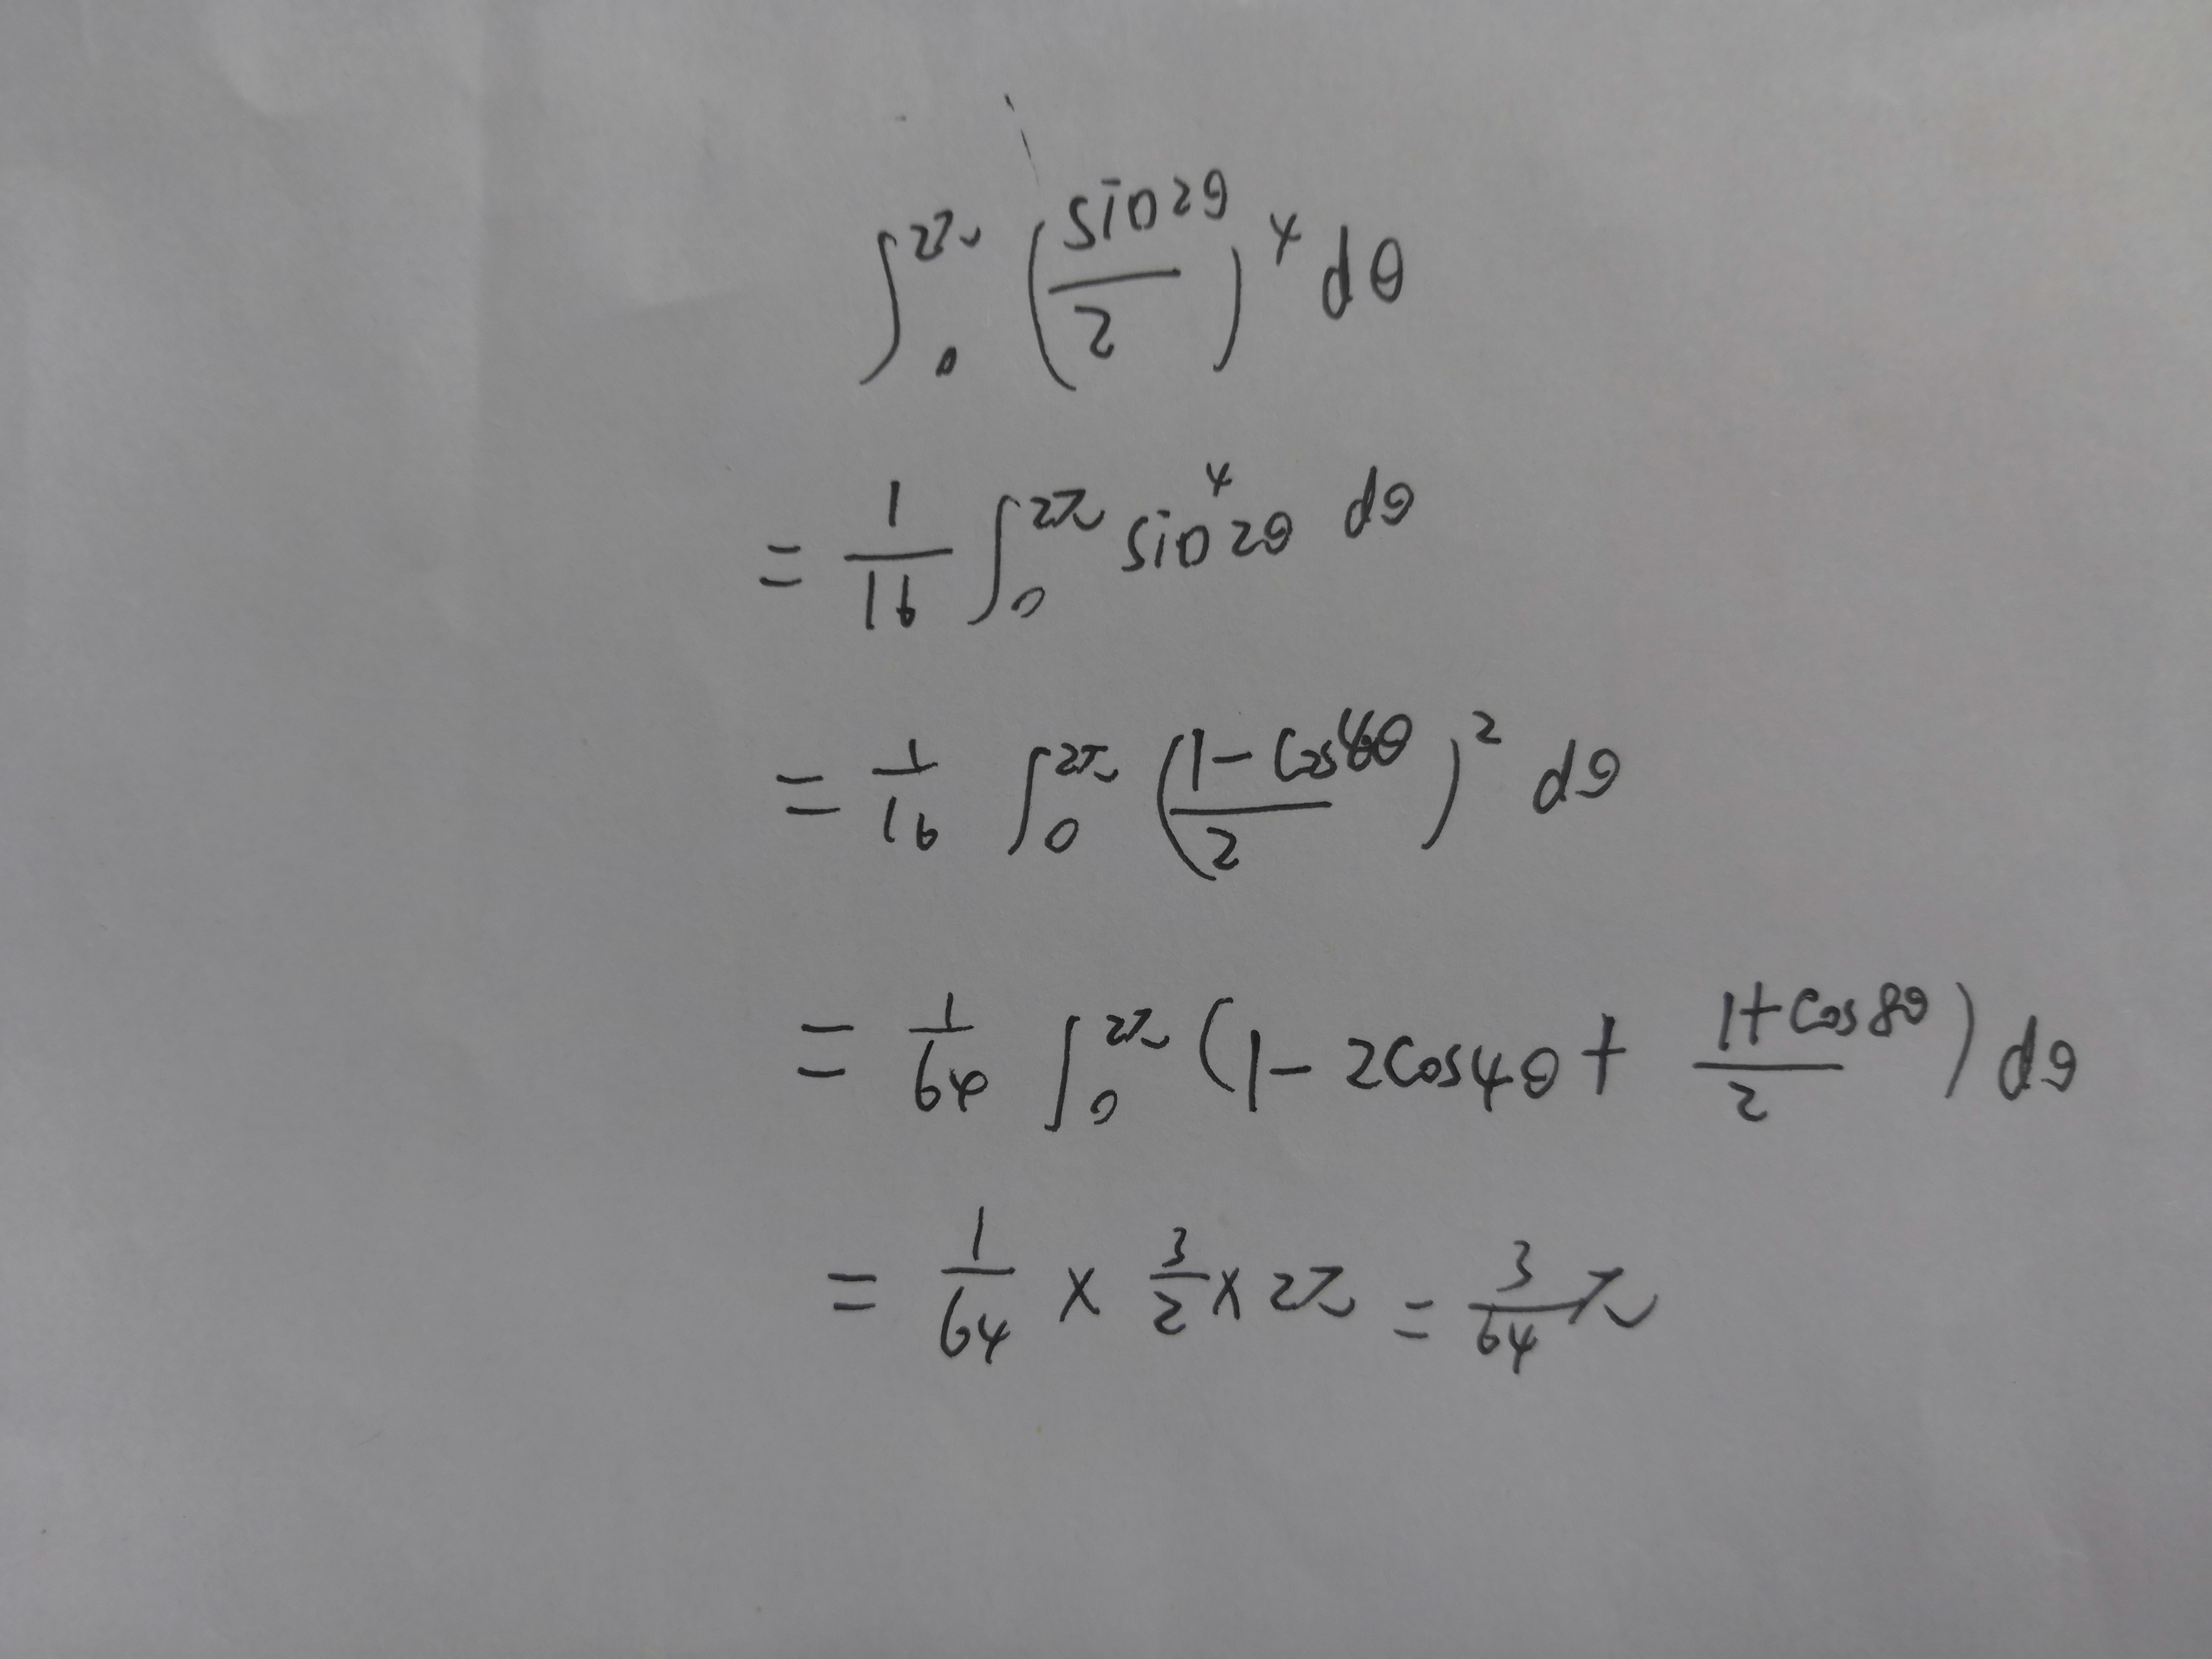 ∫₀^{2π} (sin2θ/2)⁴ dθ
= 1/16 ∫₀^{2π} sin⁴2θ dθ
= 1/16 ∫₀^{2π} ((1-cos4θ)/2)² dθ
= 1/64 ∫₀^{2π} (1-2cos4θ + (1+cos8θ)/2) dθ
= 1/64 × 3/2 × 2π = 3/64 π